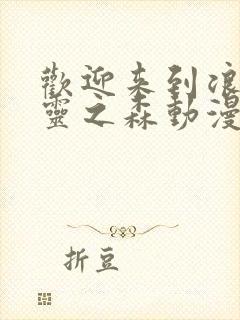 歡迎来到浪
靈之森動漫
折豆